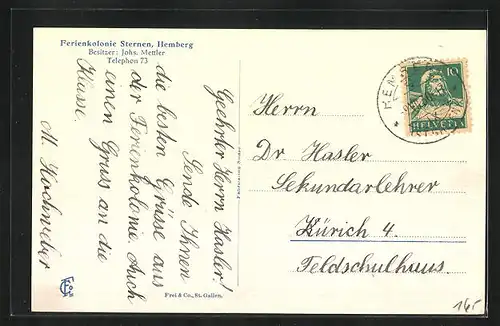 Ferienkolonie Sternen, Hemberg
Besitzer: Johs. Mettler
Telephon 73
Geehrter Herrn Hasler!
Sende Ihnen
die besten Grüsse aus
der Ferienkolonie. Auch
einen Gruss an die
Klasse.
M. Hochweber
Frei & Co., St. Gallen.
Herrn
Dr Hasler
Sekundarlehrer
Zürich 4.
Feldschulhaus.
10
HELVETIA